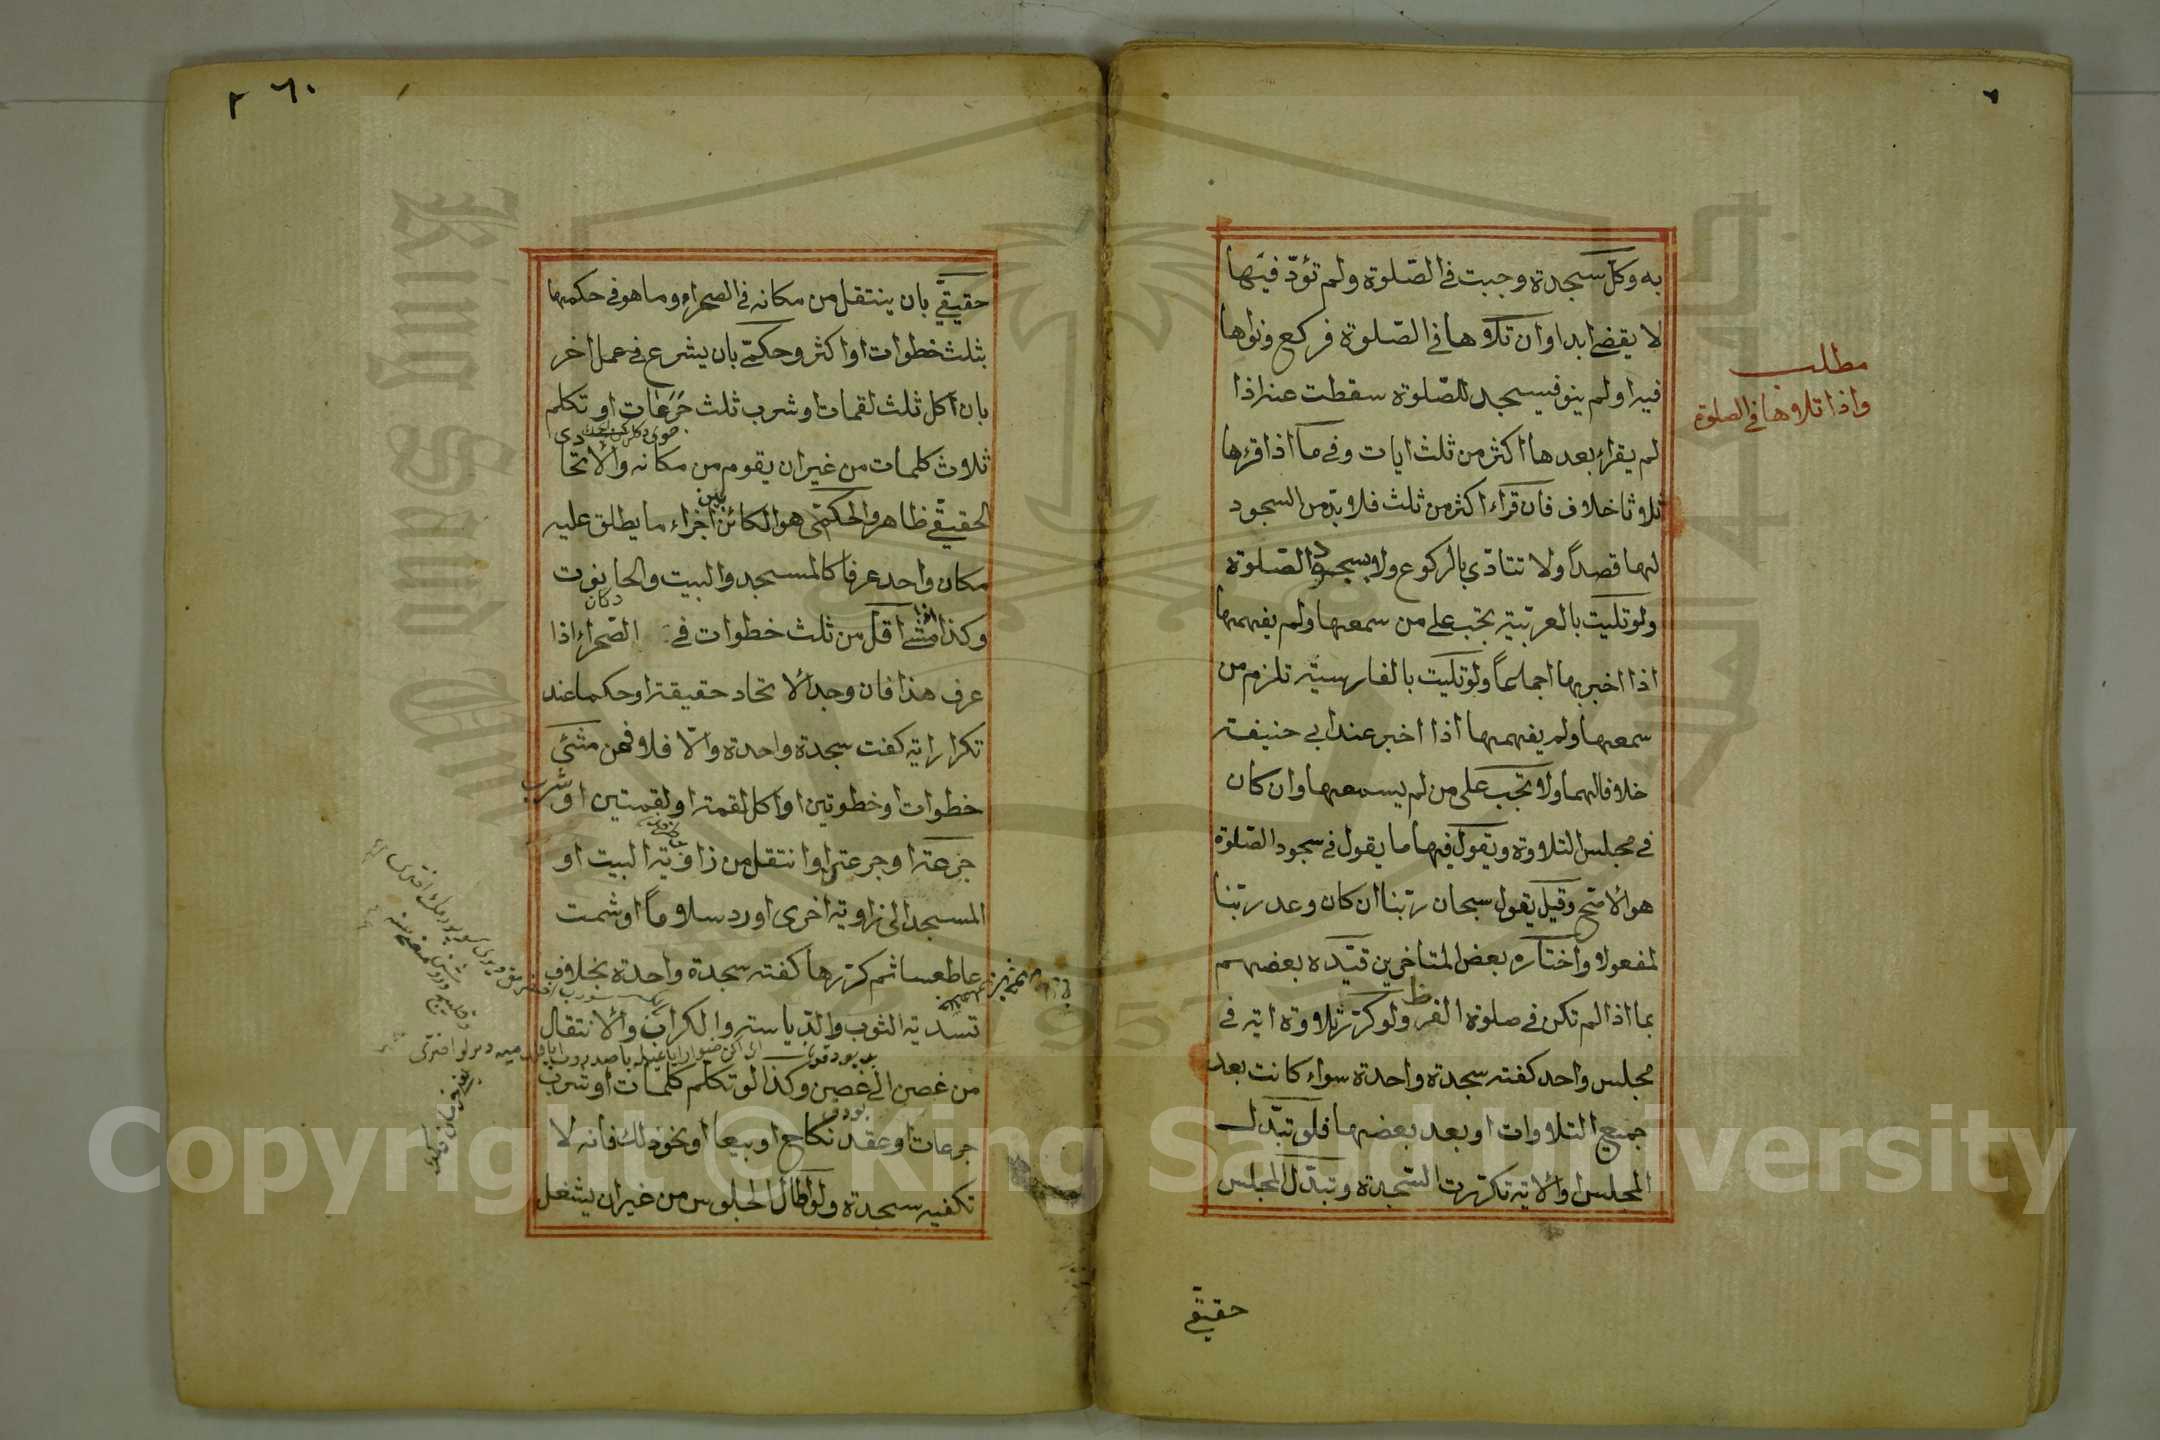 به وكل سجدة وجبت في الصلوة ولم تؤدّ فيها
لا يقضى ابدا وان تلاوها في الصلوة فركع ونواها
فيه او لم ينو فيسجد للصلوة سقطت عنه اذا
لم يقراء بعدها اكثر من ثلث ايات وفي ما اذا قرءها
ثلاوثا خلاف فان قراء اكثر من ثلث فلاوبدّ من السجود
لها قصداً ولا تتادّى بالركوع ولا بسجود الصلوة
ولو تليت بالعربيّة يجب على من سمعها ولم يفهمها
اذا اخبر بها اجماعاً ولو تليت بالفارسيّة تلزم من
سمعها ولم يفهمها اذا اخبر عند ابي حنيفة
خلافا لهما ولا تجب على من لم يسمعها وان كان
في مجلس التلاوة ويقول فيها ما يقول في سجود الصلوة
هو الاصح وقيل يقول سبحان ربّنا ان كان وعد ربّنا
لمفعولا واختاره بعض المتاخرين قيّده بعضهم
بما اذا لم تكن في صلوة الفرض ولو كرّر تلاوة اية في
مجلس واحد كفته سجدة واحدة سواء كانت بعد
جميع التلاوات او بعد بعضها فلو تبّدل
المجلس والاية تكرّرت السّجدة وتبدّل المجلس
حقيقي
مطلب
واذا تلاوها في الصلوة
٦٠
حقيقيّ بان ينتقل من مكانه في الصحراء وما هو في حكمها
بثلث خطوات او اكثر وحكمّي بان يشرع في عمل اخر
بان اكل ثلث لقمات او شرب ثلث جَرَعَات او تكلم
ثلاوث كلمات من غير ان يقوم من مكانه والاتحا دى
الحقيقّي ظاهر والحكمّي هو الكائن بين اجزاء ما يطلق عليه
مكان واحد عرفا كالمسجد والبيت والحانوت
دكان
وكذا اذا مشى اقل من ثلث خطوات في الصّحراء اذا
عرف هذا فان وجد الاتحاد حقيقة او حكما عند
تكرار اية كفت سجدة واحدة والّا فلا فمن مشى
خطوات او خطوتين او اكل لقمة او لقمتين او شرب
جرعة او جرعتين او انتقل من زاوية البيت او
المسجد الى زاوية اخرى او رد سلاوماً او شمت
عاطسا ثم كرّرها كفته سجدة واحدة بخلاوف
تسدية الثوب والدّياسة والكراب والانتقال
من غصن الى غصن وكذا لو تكلّم كلمات او شرب
جرعات او عقد نكاح او بيعا او نحو ذلك فانه لا
تكفيه سجدة ولو طال الجلوس من غير ان يشغل
King Saud University
1957
Copyright © King Saud University